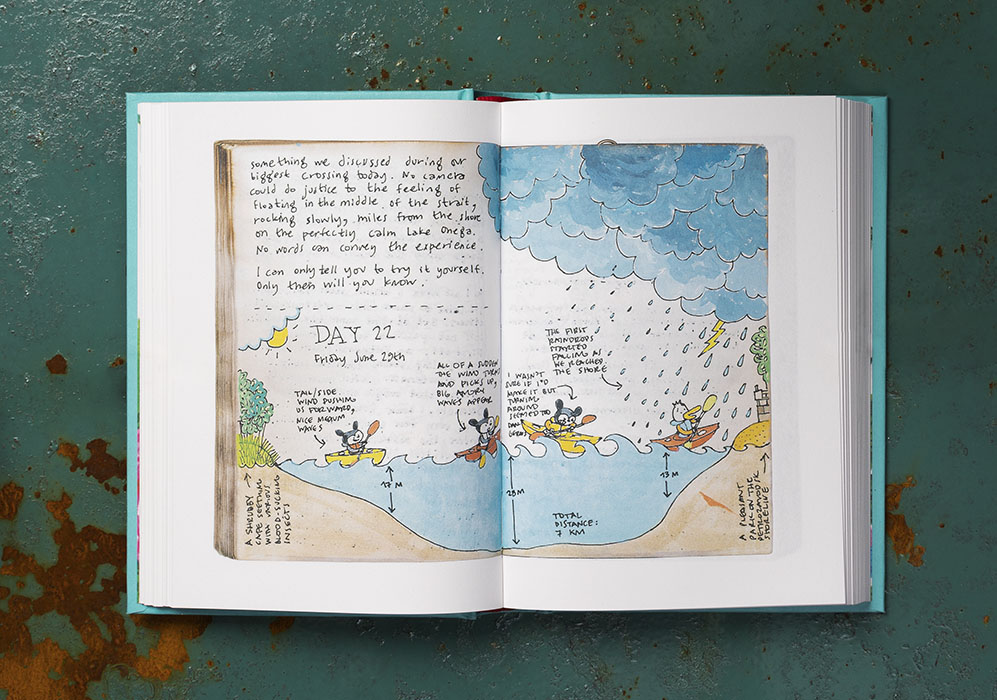 something we discussed during our
biggest crossing today. No camera
could do justice to the feeling of
floating in the middle of the strait,
rocking slowly, miles from the shore
on the perfectly calm Lake Onega.
No words can convey the experience.
I can only tell you to try it yourself.
Only then will you know.
DAY 22
Friday June 29th
TAIL/SIDE
WIND PUSHING
US FORWARD,
NICE MEDIUM
WAVES
ALL OF A SUDDEN
THE WIND TURNS
AND PICKS UP,
BIG ANGRY
WAVES APPEAR
I WASN'T
SURE IF I'D
MAKE IT BUT
TURNING
AROUND
SEEMED TOO
DAN
GEROUS
THE FIRST
RAINDROPS
STARTED
FALLING AS
WE REACHED
THE SHORE
17 M
25 M
13 M
TOTAL
DISTANCE:
7 KM
A SHRUBBY
CAPE SEETHING
WITH VARIOUS
BLOOD-SUCKING
INSECTS
A PLEASANT
PARK ON THE
PETROZAVODSK
SHORELINE